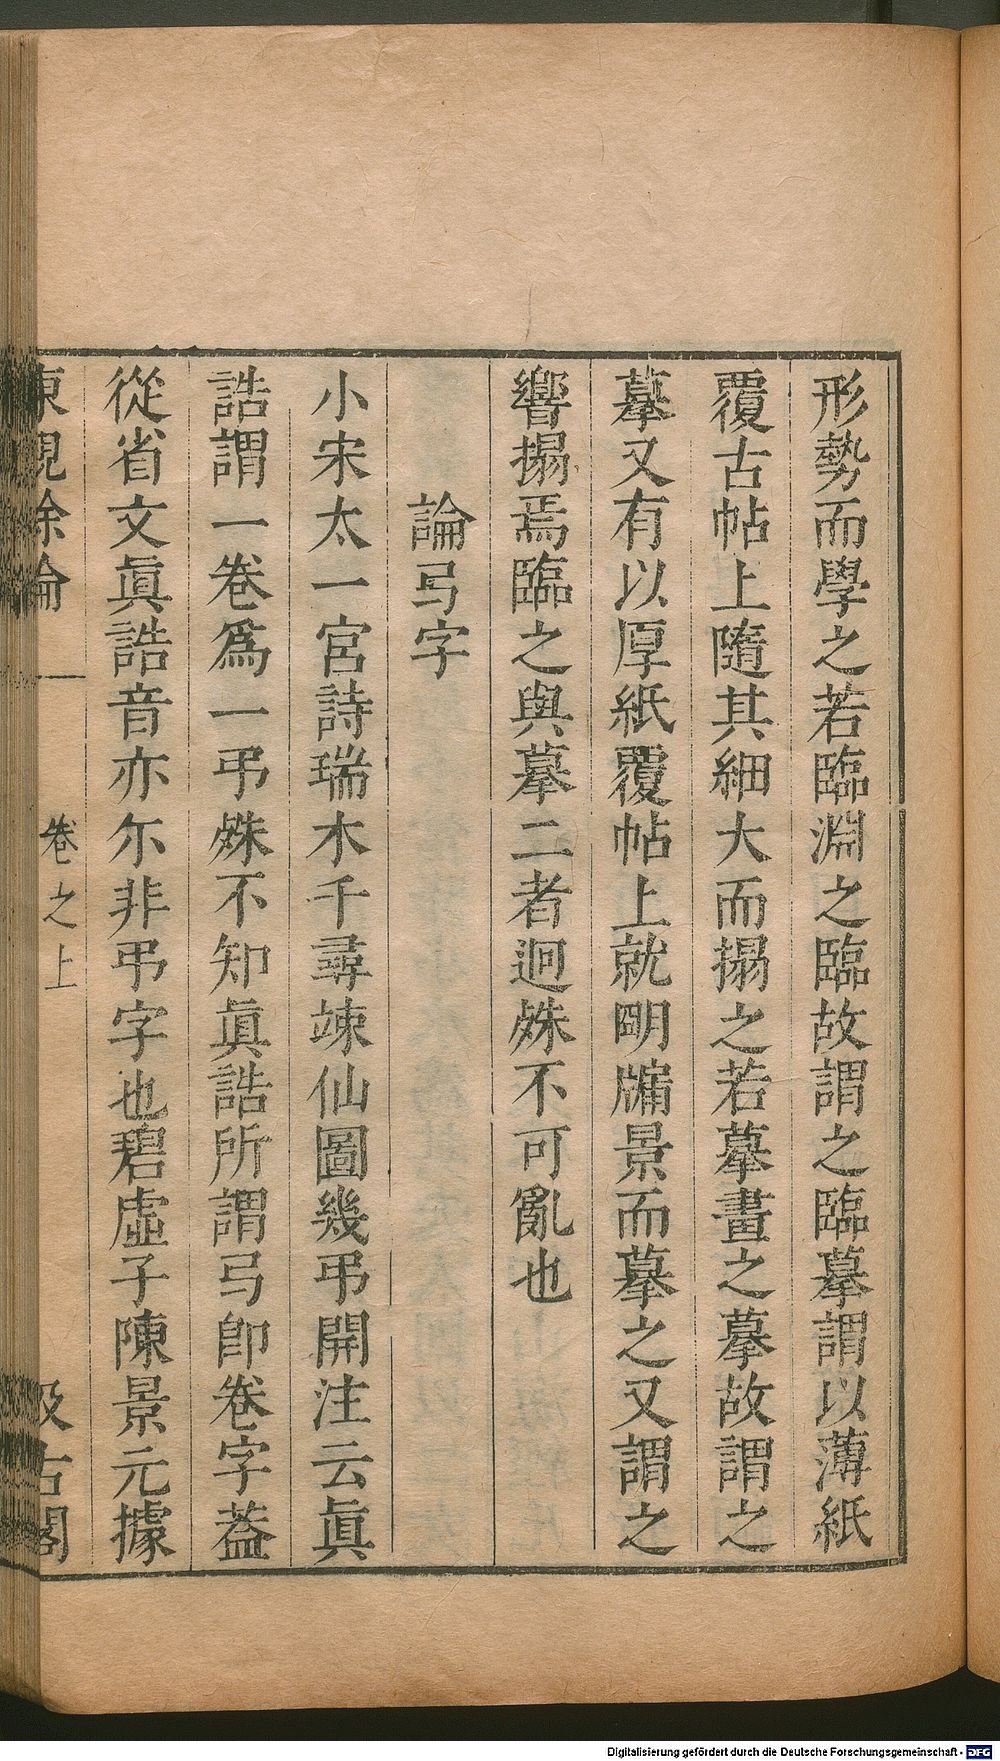 形勢而學之若臨淵之臨故謂之臨摹謂以薄紙
覆古帖上隨其細大而搨之若摹畫之摹故謂之
摹又有以厚紙覆帖上就明牗景而摹之又謂之
響搨焉臨之與摹二者迥殊不可亂也
論弓字
小宋太一宮詩瑞木千尋竦仙圖幾弔開注云眞
誥謂一卷爲一弔殊不知眞誥所謂弓卽卷字葢
從省文眞誥音亦尒非弔字也碧虛子陳景元據
東觀餘論 卷之上 汲古閣
Digitalisierung gefördert durch die Deutsche Forschungsgemeinschaft - DFG